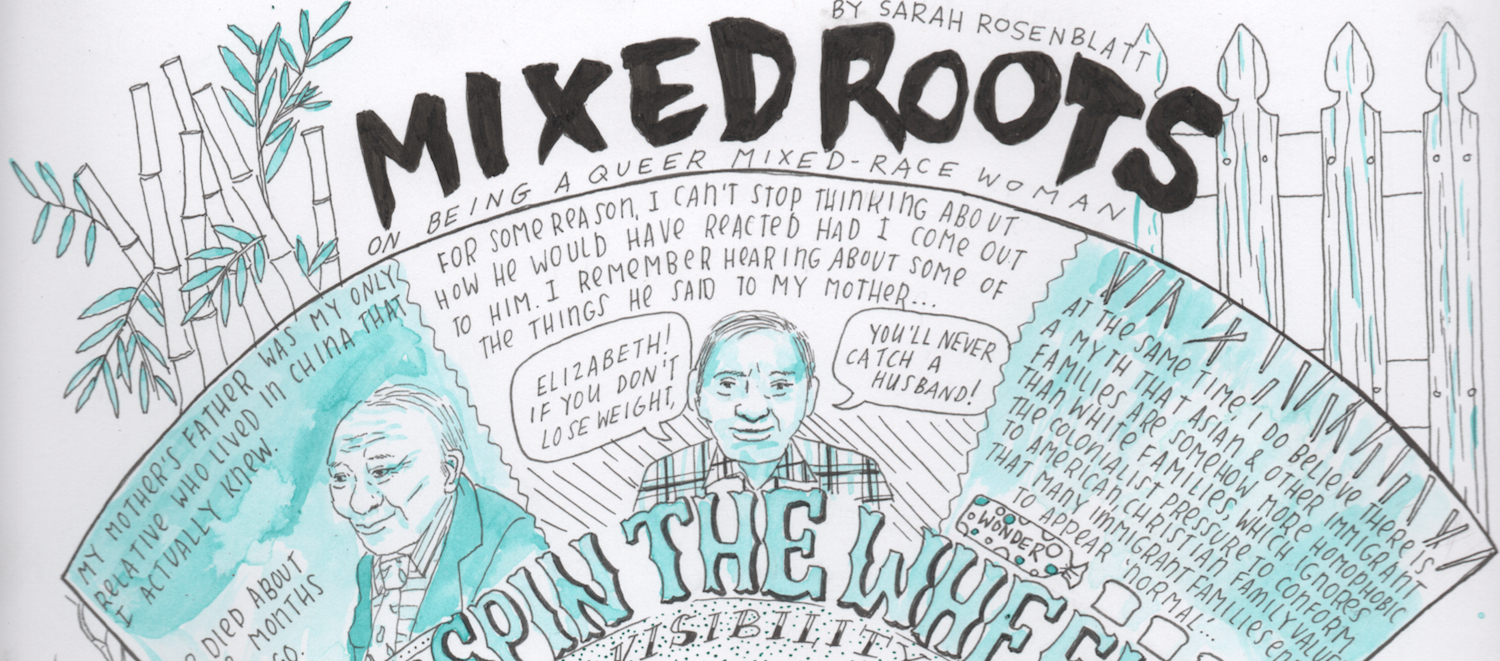 BY SARAH ROSENBLATT
MIXED ROOTS
ON BEING A QUEER MIXED-RACE WOMAN
MY MOTHER'S FATHER WAS MY ONLY
RELATIVE WHO LIVED IN CHINA THAT
I ACTUALLY KNEW.
DIED ABOUT
MONTHS
GO.
FOR SOME REASON, I CAN'T STOP THINKING ABOUT
HOW HE WOULD HAVE REACTED HAD I COME OUT
TO HIM. I REMEMBER HEARING ABOUT SOME OF
THE THINGS HE SAID TO MY MOTHER...
ELIZABETH!
IF YOU DON'T
LOSE WEIGHT,
YOU'LL NEVER
CATCH A
HUSBAND!
AT THE SAME TIME I DO BELIEVE THERE IS
A MYTH THAT ASIAN & OTHER IMMIGRANT
FAMILIES ARE SOMEHOW MORE HOMOPHOBIC
THAN WHITE FAMILIES, WHICH IGNORES
THE COLONIALIST PRESSURE TO CONFORM
TO AMERICAN CHRISTIAN FAMILY VALUE
THAT MANY IMMIGRANT FAMILIES
TO APPEAR 'NORMAL'...
WONDER
SPIN THE WHEEL
VISIBILITY